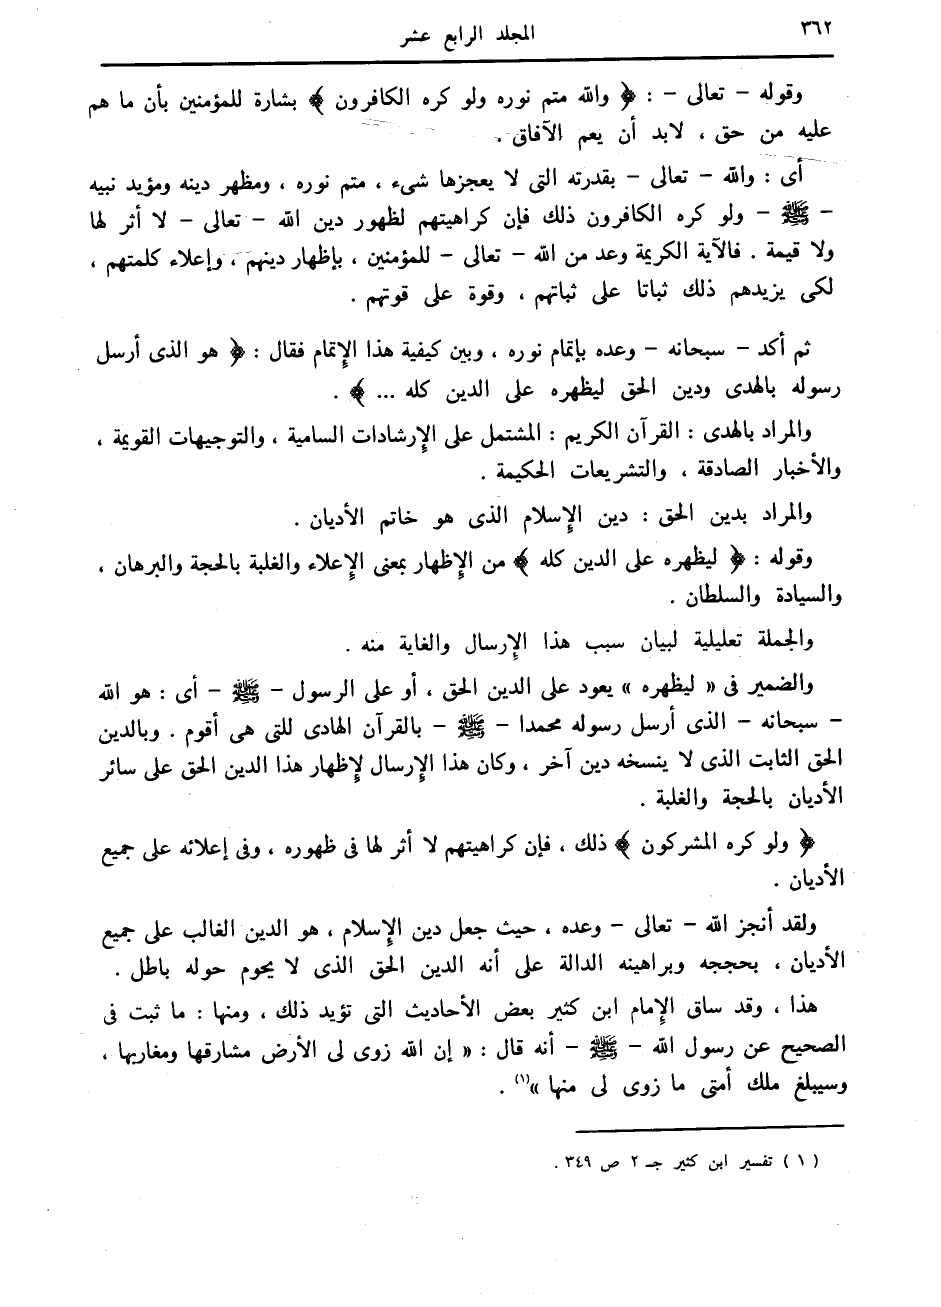 ٣٦٢
المجلد الرابع عشر
وقوله – تعالى – : ﴿ والله متم نوره ولو كره الكافرون ﴾ بشارة للمؤمنين بأن ما هم
عليه من حق ، لابد أن يعم الآفاق .
أى : والله – تعالى – بقدرته التى لا يعجزها شىء ، متم نوره ، ومظهر دينه ومؤيد نبيه
– ﷺ – ولو كره الكافرون ذلك فإن كراهيتهم لظهور دين الله – تعالى – لا أثر لها
ولا قيمة . فالآية الكريمة وعد من الله – تعالى – للمؤمنين ، بإظهار دينهم ، وإعلاء كلمتهم ،
لكى يزيدهم ذلك ثباتا على ثباتهم ، وقوة على قوتهم .
ثم أكد – سبحانه – وعده بإتمام نوره ، وبين كيفية هذا الإتمام فقال : ﴿ هو الذى أرسل
رسوله بالهدى ودين الحق ليظهره على الدين كله ... ﴾ .
والمراد بالهدى : القرآن الكريم : المشتمل على الإرشادات السامية ، والتوجيهات القويمة ،
والأخبار الصادقة ، والتشريعات الحكيمة .
والمراد بدين الحق : دين الإسلام الذى هو خاتم الأديان .
وقوله : ﴿ ليظهره على الدين كله ﴾ من الإظهار بمعنى الإعلاء والغلبة بالحجة والبرهان ،
والسيادة والسلطان .
والجملة تعليلية لبيان سبب هذا الإرسال والغاية منه .
والضمير فى « ليظهره » يعود على الدين الحق ، أو على الرسول – ﷺ – أى : هو الله
– سبحانه – الذى أرسل رسوله محمدا – ﷺ – بالقرآن الهادى للتى هى أقوم . وبالدين
الحق الثابت الذى لا ينسخه دين آخر ، وكان هذا الإرسال لإظهار هذا الدين الحق على سائر
الأديان بالحجة والغلبة .
﴿ ولو كره المشركون ﴾ ذلك ، فإن كراهيتهم لا أثر لها فى ظهوره ، وفى إعلائه على جميع
الأديان .
ولقد أنجز الله – تعالى – وعده ، حيث جعل دين الإسلام ، هو الدين الغالب على جميع
الأديان ، بحججه وبراهينه الدالة على أنه الدين الحق الذى لا يحوم حوله باطل .
هذا ، وقد ساق الإمام ابن كثير بعض الأحاديث التى تؤيد ذلك ، ومنها : ما ثبت فى
الصحيح عن رسول الله – ﷺ – أنه قال : « إن الله زوى لى الأرض مشارقها ومغاربها ،
وسيبلغ ملك أمتى ما زوى لى منها »(١) .
( ١ ) تفسير ابن كثير جـ ٢ ص ٣٤٩ .